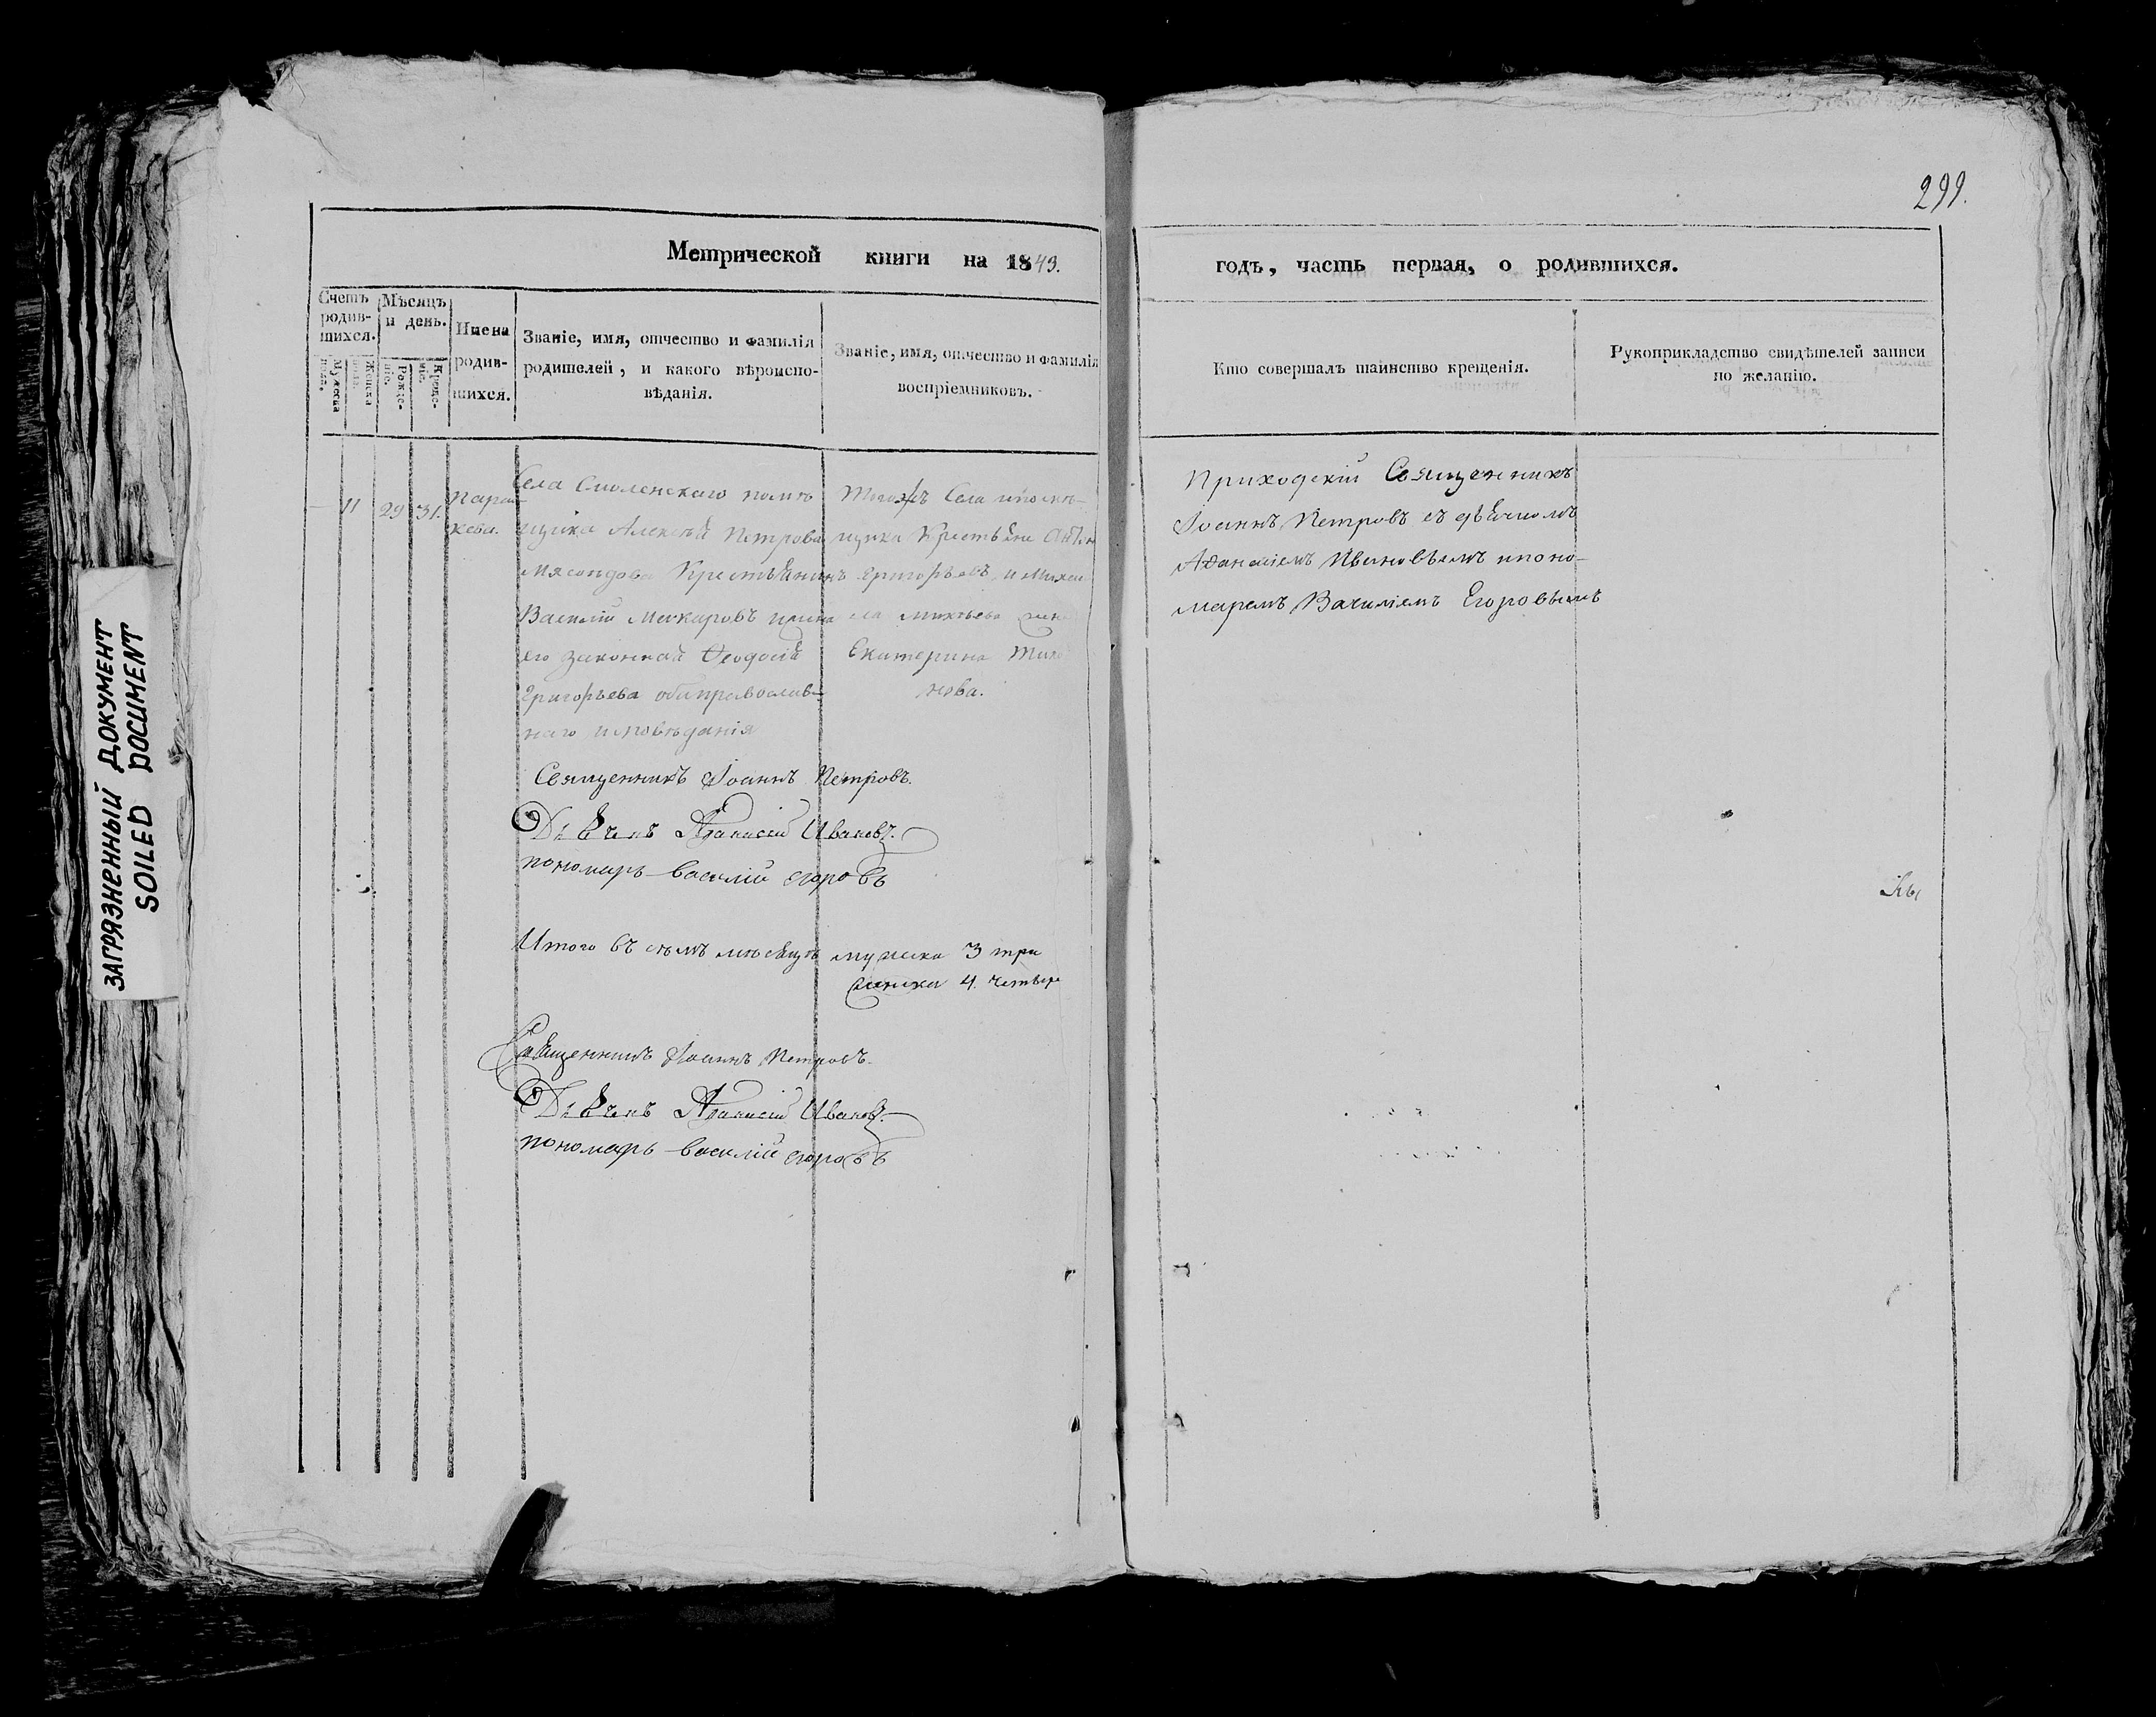 299.
Метрической книги на 1843.
годъ, часть первая, о родившихся.
Счетъ родив-шихся.
Мужеска пола.
Женска пола.
Мѣсяцъ и день.
Рожде-ніе.
Креще-ніе.
Имена родив-шихся.
Званіе, имя, отчество и фамилія
родителей, и какого вѣроиспо-
вѣданія.
Званіе, имя, отчество и фамилія
воспріемниковъ.
Кто совершалъ таинство крещенія.
Рукоприкладство свидѣтелей записи
по желанію.
11 29 31.
Пара-
кева.
Села Смоленскаго помѣ
щика Алексѣй Петрова
Мясоѣдова Крестьянинъ
Василій Макаровъ и жена
его законная Ѳеодосія
Григорьева оба православ-
наго исповѣданія
Тогожъ Села и помѣ-
щика Крестьяне
Григорьевъ и Михаи
ла жена
Екатерина Тихо
нова.
Приходскій Священникъ
Іоаннъ Петровъ съ дьячкомъ
Аѳанасіемъ Ивановымъ и поно-
маремъ Василіемъ Егоровымъ
Священникъ Іоаннъ Петровъ.
Дьячекъ Аѳанасій Ивановъ.
пономарь василій егоровъ
Итого въ семъ мѣсяцѣ мужска 3 три
женска 4. четыре
Священникъ Іоаннъ Петровъ.
Дьячекъ Аѳанасій Ивановъ.
пономарь василій егоровъ
ЗАГРЯЗНЕННЫЙ ДОКУМЕНТ
SOILED DOCUMENT